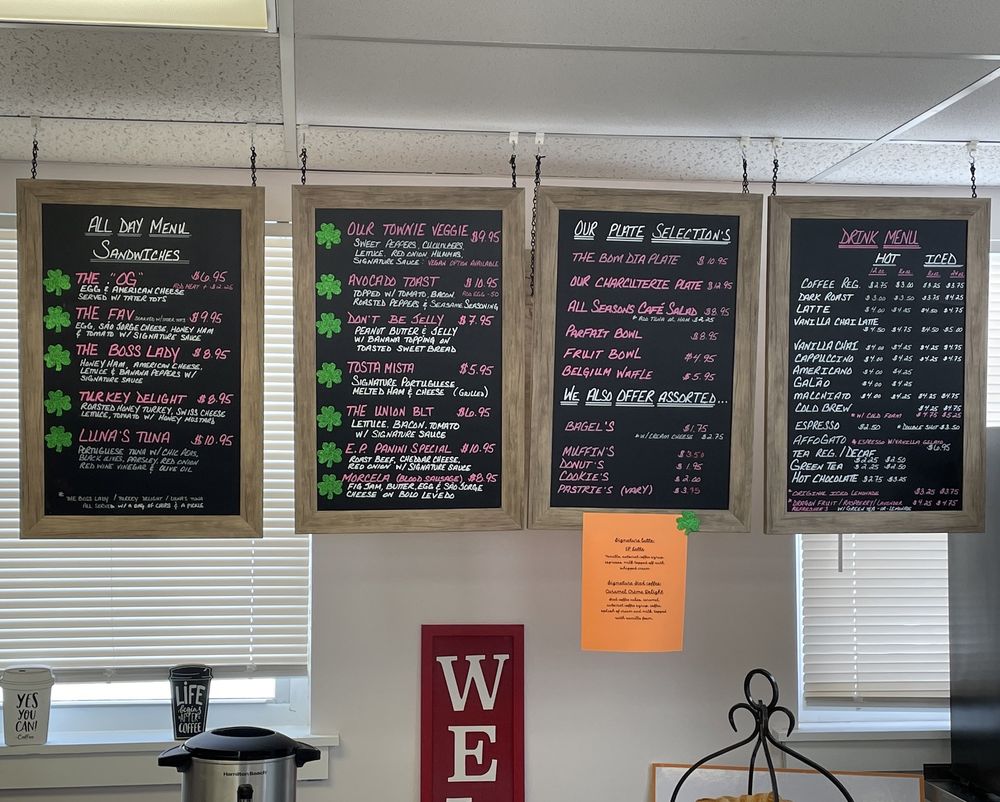 ALL DAY MENU
SANDWICHES
THE "OG" $6.95
EGG & AMERICAN CHEESE ADD MEAT + $2.25
SERVED W/ TATER TOTS
THE FAV $9.95
EGG, SÃO JORGE CHEESE, HONEY HAM
& TOMATO W/ SIGNATURE SAUCE
THE BOSS LADY $8.95
HONEY HAM, AMERICAN CHEESE,
LETTUCE & BANANA PEPPERS W/
SIGNATURE SAUCE
TURKEY DELIGHT $8.95
ROASTED HONEY TURKEY, SWISS CHEESE
LETTUCE, TOMATO W/ HONEY MUSTARD
LUNA'S TUNA $10.95
PORTUGUESE TUNA W/ CHIC PEAS,
BLACK OLIVES, PARSLEY, RED ONION
RED WINE VINEGAR & OLIVE OIL
* THE BOSS LADY / TURKEY DELIGHT / LUNA'S TUNA
ALL SERVED W/ A BAG OF CHIPS & A PICKLE
OUR TOWNIE VEGGIE $9.95
SWEET PEPPERS, CUCUMBERS,
LETTUCE, RED ONION, HUMMUS,
SIGNATURE SAUCE: VEGAN OPTION AVAILABLE
AVOCADO TOAST $10.95
TOPPED W/ TOMATO, BACON, ADD EGG .50
ROASTED PEPPERS & SESAME SEASONING
DON'T BE JELLY $7.95
PEANUT BUTTER & JELLY
W/ BANANA TOPPING ON
TOASTED SWEET BREAD
TOSTA MISTA $5.95
SIGNATURE PORTUGUESE
MELTED HAM & CHEESE (GRILLED)
THE UNION BLT $6.95
LETTUCE, BACON, TOMATO
W/ SIGNATURE SAUCE
E.P. PANINI SPECIAL $10.95
ROAST BEEF, CHEDDAR CHEESE,
RED ONION W/ SIGNATURE SAUCE
MORCELA (BLOOD SAUSAGE) $8.95
FIG JAM, BUTTER, EGG & SÃO JORGE
CHEESE ON BOLO LEVEDO
OUR PLATE SELECTION'S
THE BOM DIA PLATE $10.95
OUR CHARCUTERIE PLATE $12.95
ALL SEASONS CAFÉ SALAD $8.95
* ADD TUNA OR HAM $2.25
PARFAIT BOWL $8.95
FRUIT BOWL $4.95
BELGIUM WAFFLE $5.95
WE ALSO OFFER ASSORTED...
BAGEL'S $1.75
* W/ CREAM CHEESE $2.75
MUFFIN'S $3.50
DONUT'S $1.95
COOKIE'S $2.00
PASTRIE'S (VARY) $3.95
DRINK MENU
HOT ICED
COFFEE REG. $2.75 $3.00 $3.25 $3.75
DARK ROAST $3.00 $3.50 $3.75 $4.25
LATTE $4.00 $4.25 $4.50 $4.75
VANILLA CHAI LATTE
$4.50 $4.75 $4.50 $5.00
VANILLA CHAI $4.00 $4.25 $4.25 $4.75
CAPPUCCINO $4.00 $4.25 $4.25 $4.75
AMERICANO $4.00 $4.25
GALÃO $4.00 $4.25
MACCHIATO $4.00 $4.25 $4.50 $4.75
COLD BREW $4.25 $4.75
* W/ COLD FOAM $4.75 $5.25
ESPRESSO $2.50 * DOUBLE SHOT $3.50
AFFOGATO * ESPRESSO W/ VANILLA GELATO
$6.95
TEA REG./DECAF $2.25 $2.50
GREEN TEA $2.25 $2.50
HOT CHOCOLATE $2.75 $3.25
* ORIGINAL ICED LEMONADE $3.25 $3.75
* DRAGON FRUIT / RASPBERRY / LAVENDER $4.25 $4.75
REFRESHER'S W/ GREEN TEA -OR- LEMONADE
Signature latte:
Signature Iced coffee:
Caramel Crème Delight
YES
YOU
CAN!
-Coffee
LIFE
begins
AFTER
COFFEE
Hamilton Beach
WE